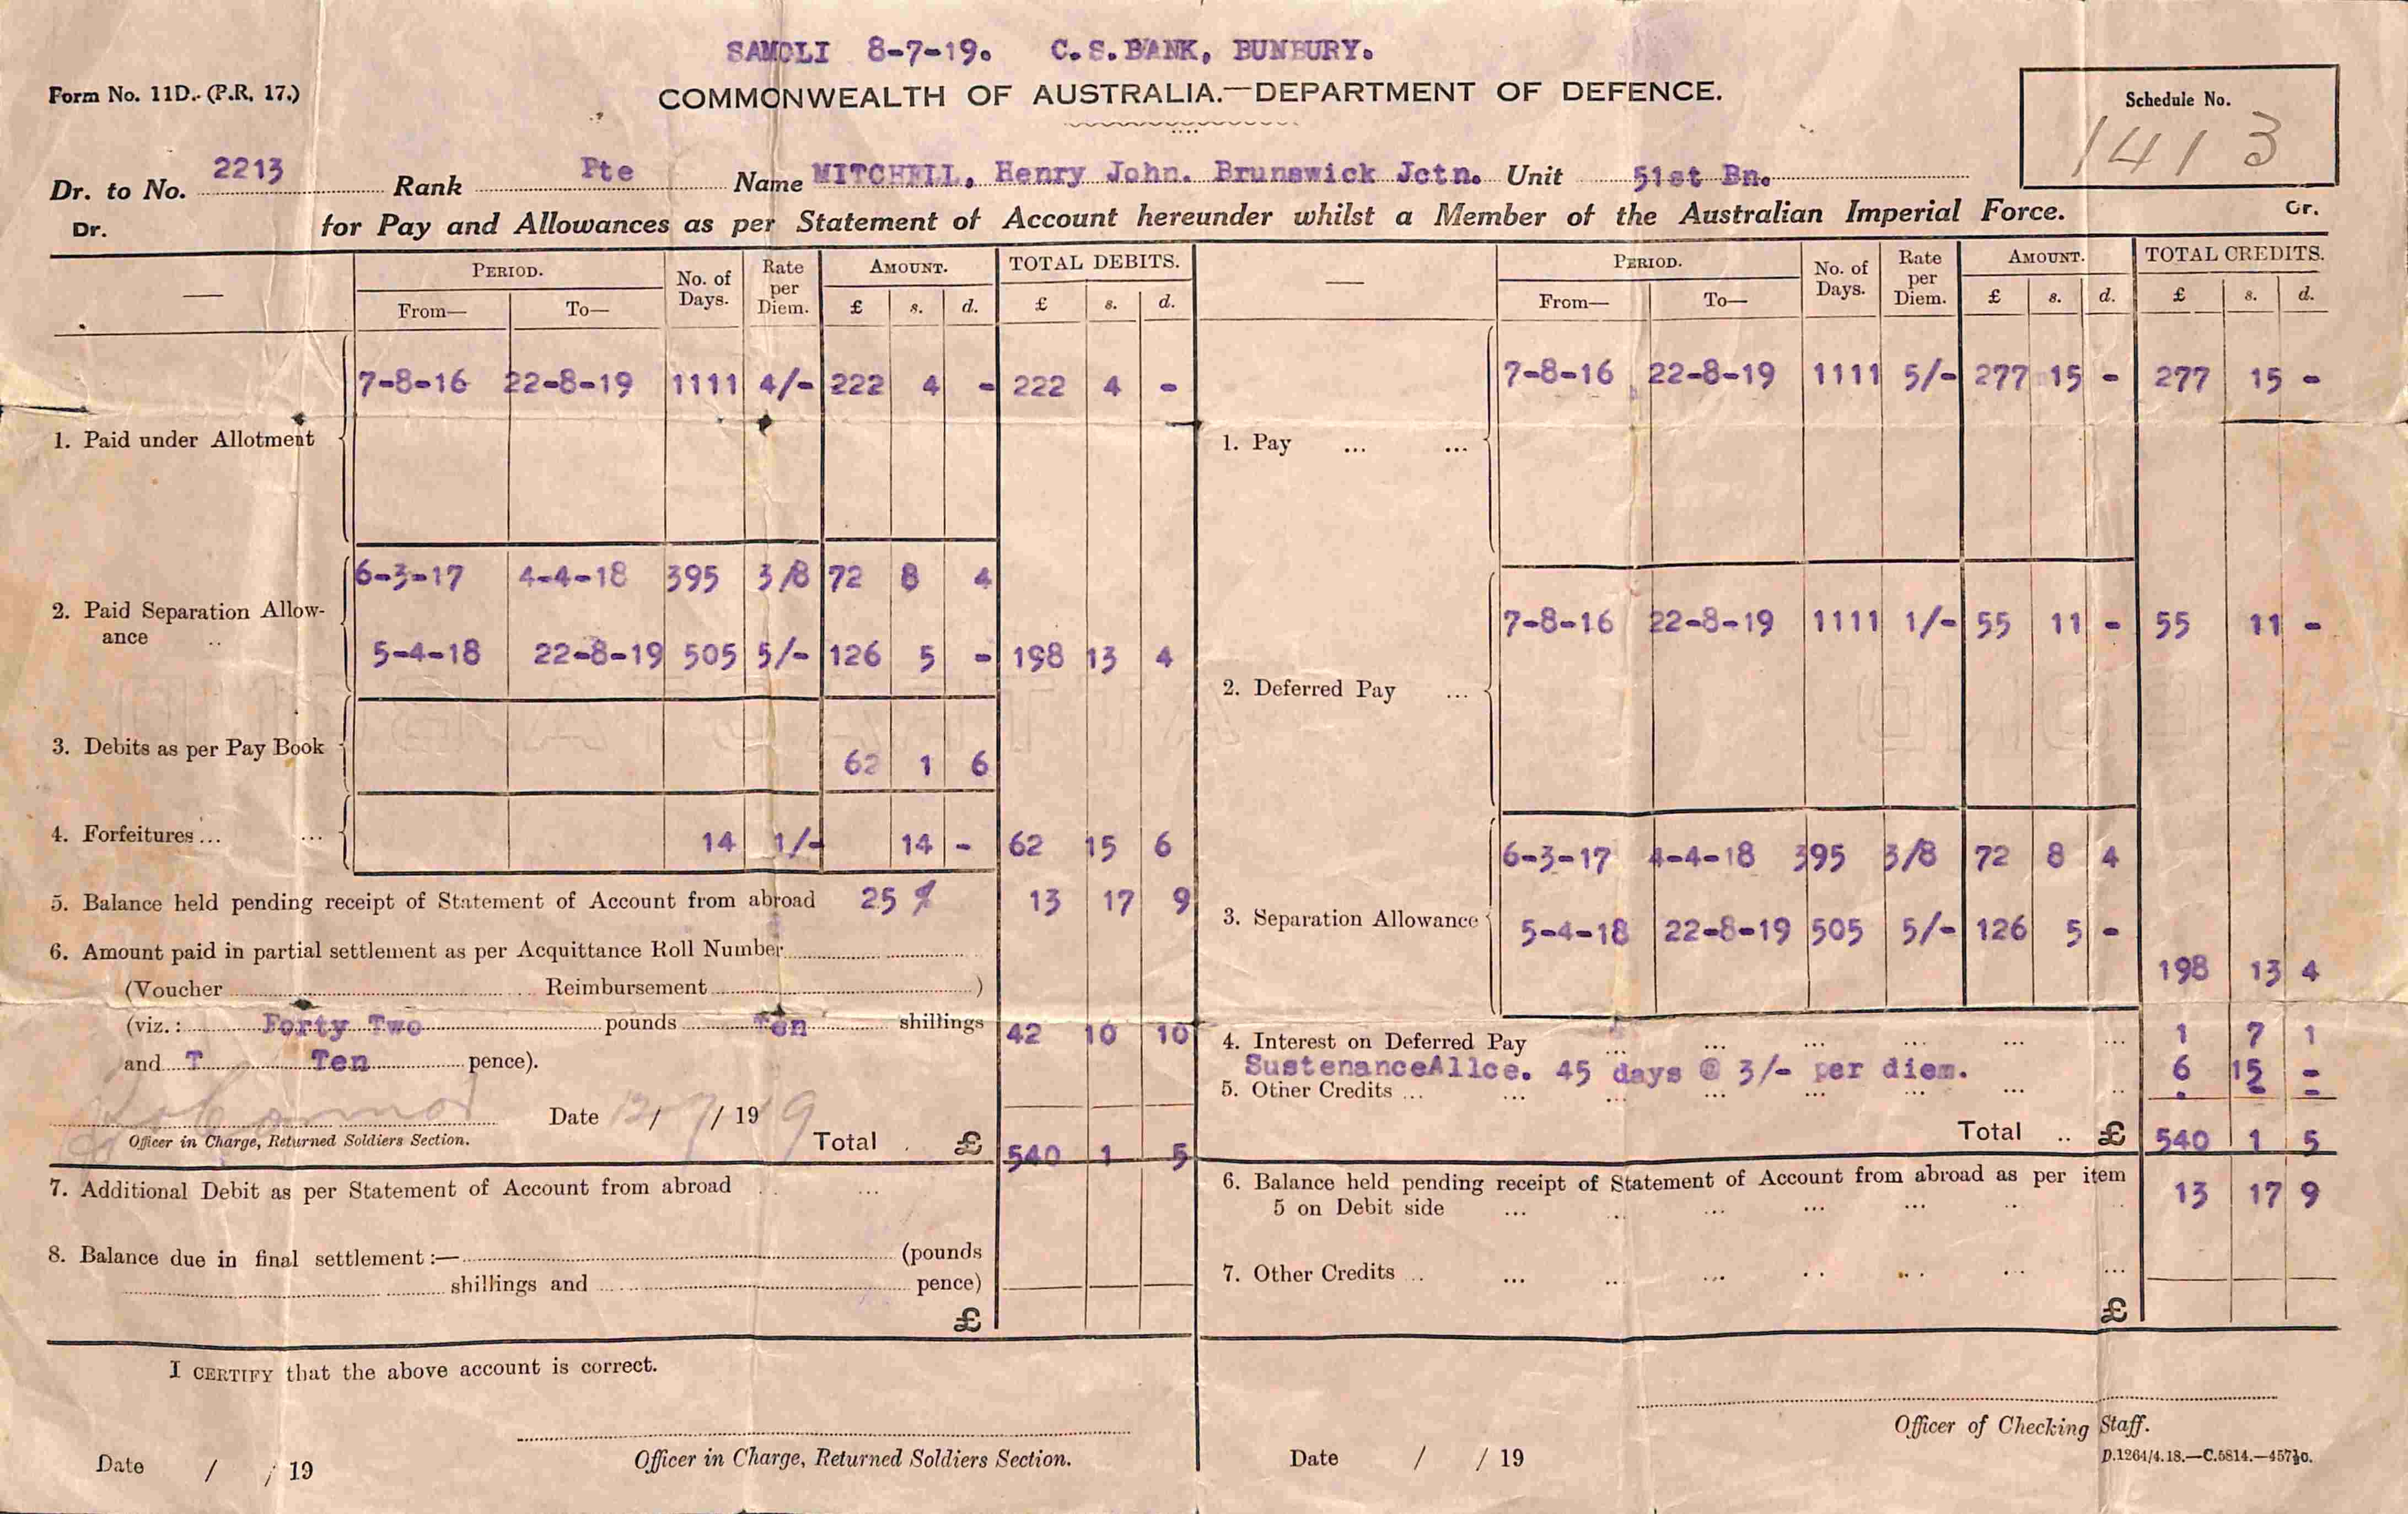 SAMOLI 8-7-19. C.S.BANK, BUNBURY.
Form No. 11D.- (P.R. 17.)
COMMONWEALTH OF AUSTRALIA.—DEPARTMENT OF DEFENCE.
Schedule No.
1413
Dr. to No. 2213 Rank Pte Name MITCHELL, Henry John. Brunswick Jctn. Unit 51st Bn.
Dr. for Pay and Allowances as per Statement of Account hereunder whilst a Member of the Australian Imperial Force. Cr.
— PERIOD. No. of Days. Rate per Diem. AMOUNT. TOTAL DEBITS.
From— To— £ s. d. £ s. d.
7-8-16 22-8-19 1111 4/- 222 4 - 222 4 -
1. Paid under Allotment
6-3-17 4-4-18 395 3/8 72 8 4
2. Paid Separation Allow-
ance ..
5-4-18 22-8-19 505 5/- 126 5 - 198 13 4
3. Debits as per Pay Book 62 1 6
4. Forfeitures ... ... 14 1/- 14 - 62 15 6
5. Balance held pending receipt of Statement of Account from abroad 25 13 17 9
6. Amount paid in partial settlement as per Acquittance Roll Number
(Voucher Reimbursement )
(viz. : Forty Two pounds Ten shillings 42 10 10
and T Ten pence).
Date 12/7/1919
Officer in Charge, Returned Soldiers Section.
Total . £ 540 1 5
7. Additional Debit as per Statement of Account from abroad .. ...
8. Balance due in final settlement :— (pounds
shillings and pence)
£
I CERTIFY that the above account is correct.
Officer in Charge, Returned Soldiers Section.
Date / / 19
— PERIOD. No. of Days. Rate per Diem. AMOUNT. TOTAL CREDITS.
From— To— £ s. d. £ s. d.
7-8-16 22-8-19 1111 5/- 277 15 - 277 15 -
1. Pay ... ...
7-8-16 22-8-19 1111 1/- 55 11 - 55 11 -
2. Deferred Pay ...
6-3-17 4-4-18 395 3/8 72 8 4
3. Separation Allowance
5-4-18 22-8-19 505 5/- 126 5 -
198 13 4
4. Interest on Deferred Pay ... ... ... ... ... ... 1 7 1
SustenanceAllce. 45 days @ 3/- per diem. 6 15 -
5. Other Credits ... ... ... ... ... ... ... ..
Total .. £ 540 1 5
6. Balance held pending receipt of Statement of Account from abroad as per item
5 on Debit side ... .. ... ... ... .. .. 13 17 9
7. Other Credits ... ... ... ... .. ... ... ...
£
Officer of Checking Staff.
Date / / 19
D.1264/4.18.—C.5814.—457½0.